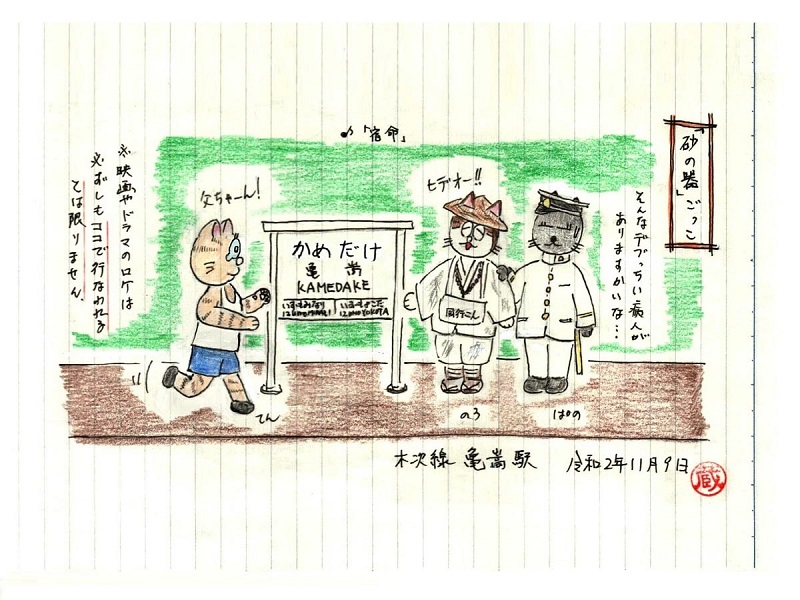 「砂の器」ごっこ
♪「宿命」
そんなデブっちい病人が
ありますかいな…
ヒデオー!!
父ちゃーん!
※映画やドラマのロケは
必ずしもココで行なわれる
とは限りません。
かめだけ
亀嵩
KAMEDAKE
いずもみなり
IZUMOMINARI
いずもよこた
IZUMOYOKOTA
同行二人
てん
のろ
ぱの
木次線 亀嵩駅 令和2年11月9日
蔵